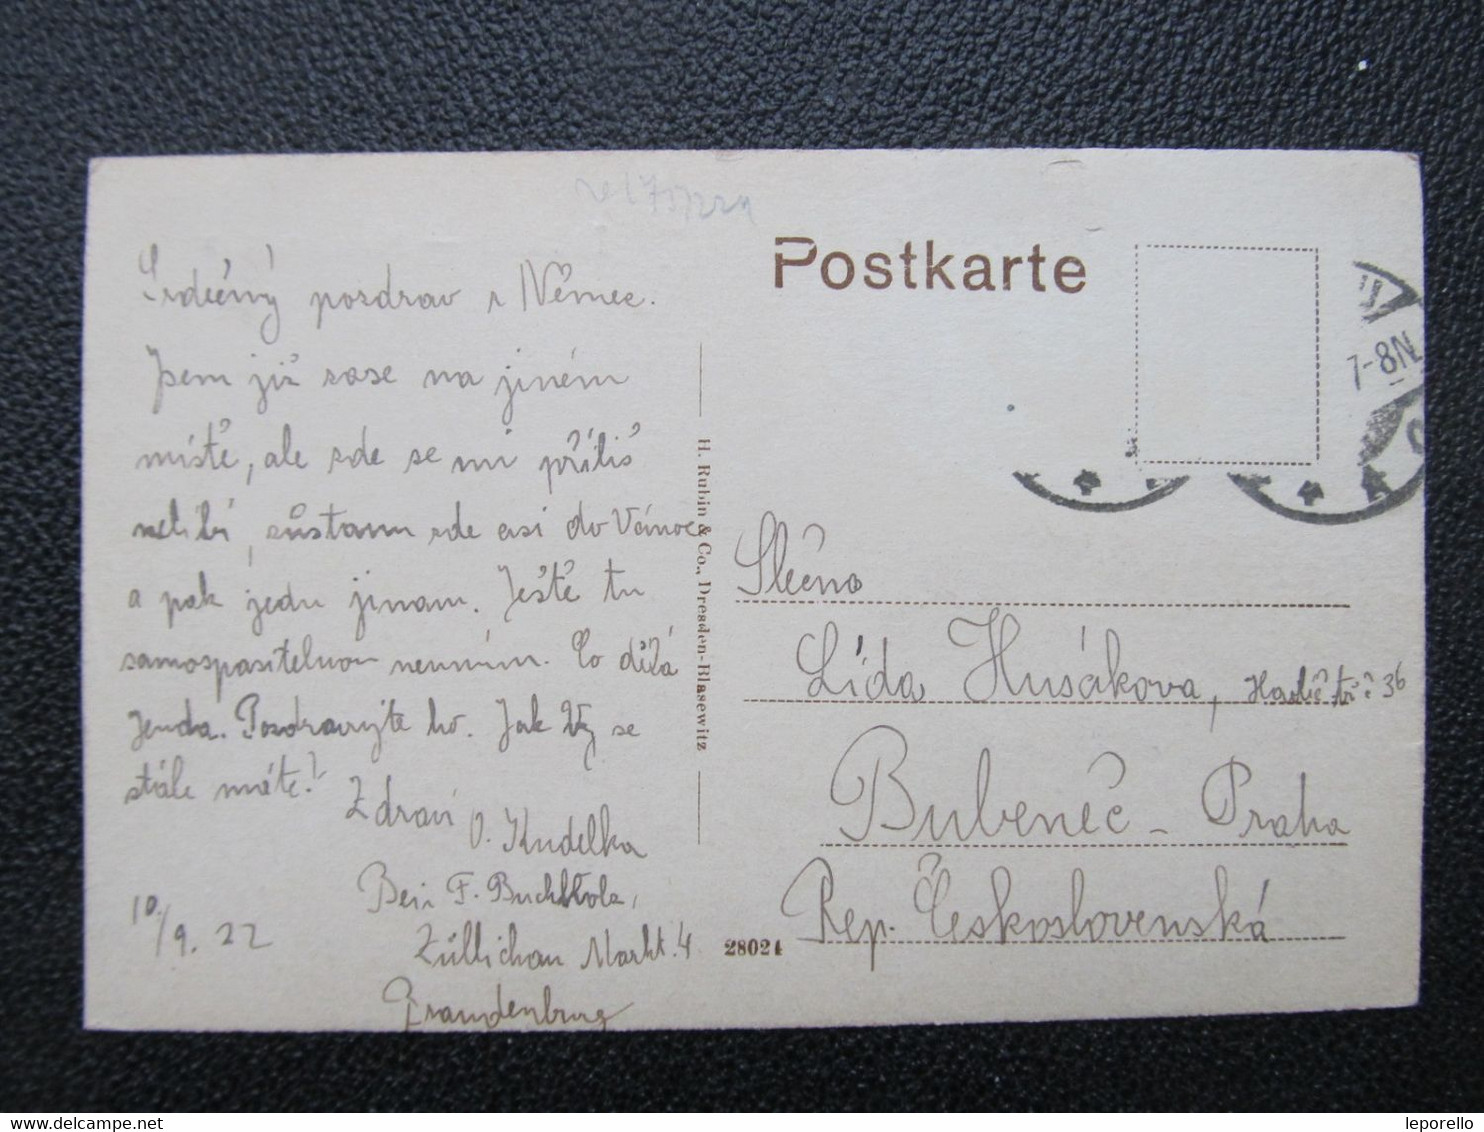 Srdečný pozdrav z Němec.
Jsem již zase na jiném
místě, ale zde se mi příliš
nelíbí, zůstanu zde asi do Vánoc
a pak jedu jinam. Ještě tu
samospasitelnou neumím. Co dělá
Jenda. Pozdravujte ho. Jak Vy se
stále máte?
Zdraví
O. Kudelka
Bei F. Buchholz,
Züllichau Markt. 4
Brandenburg
10./9. 22
H. Rubin & Co., Dresden-Blasewitz
28024
Postkarte
7-8N
Slečna
Lída Husákova, 36
Bubeneč - Praha
Rep. Československá
leporello